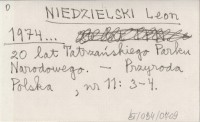 0
NIEDZIELSKI Leon
1974...
20 lat Tatrzańskiego Parku
Narodowego. — Przyroda
Polska, nr 11: 3-4.